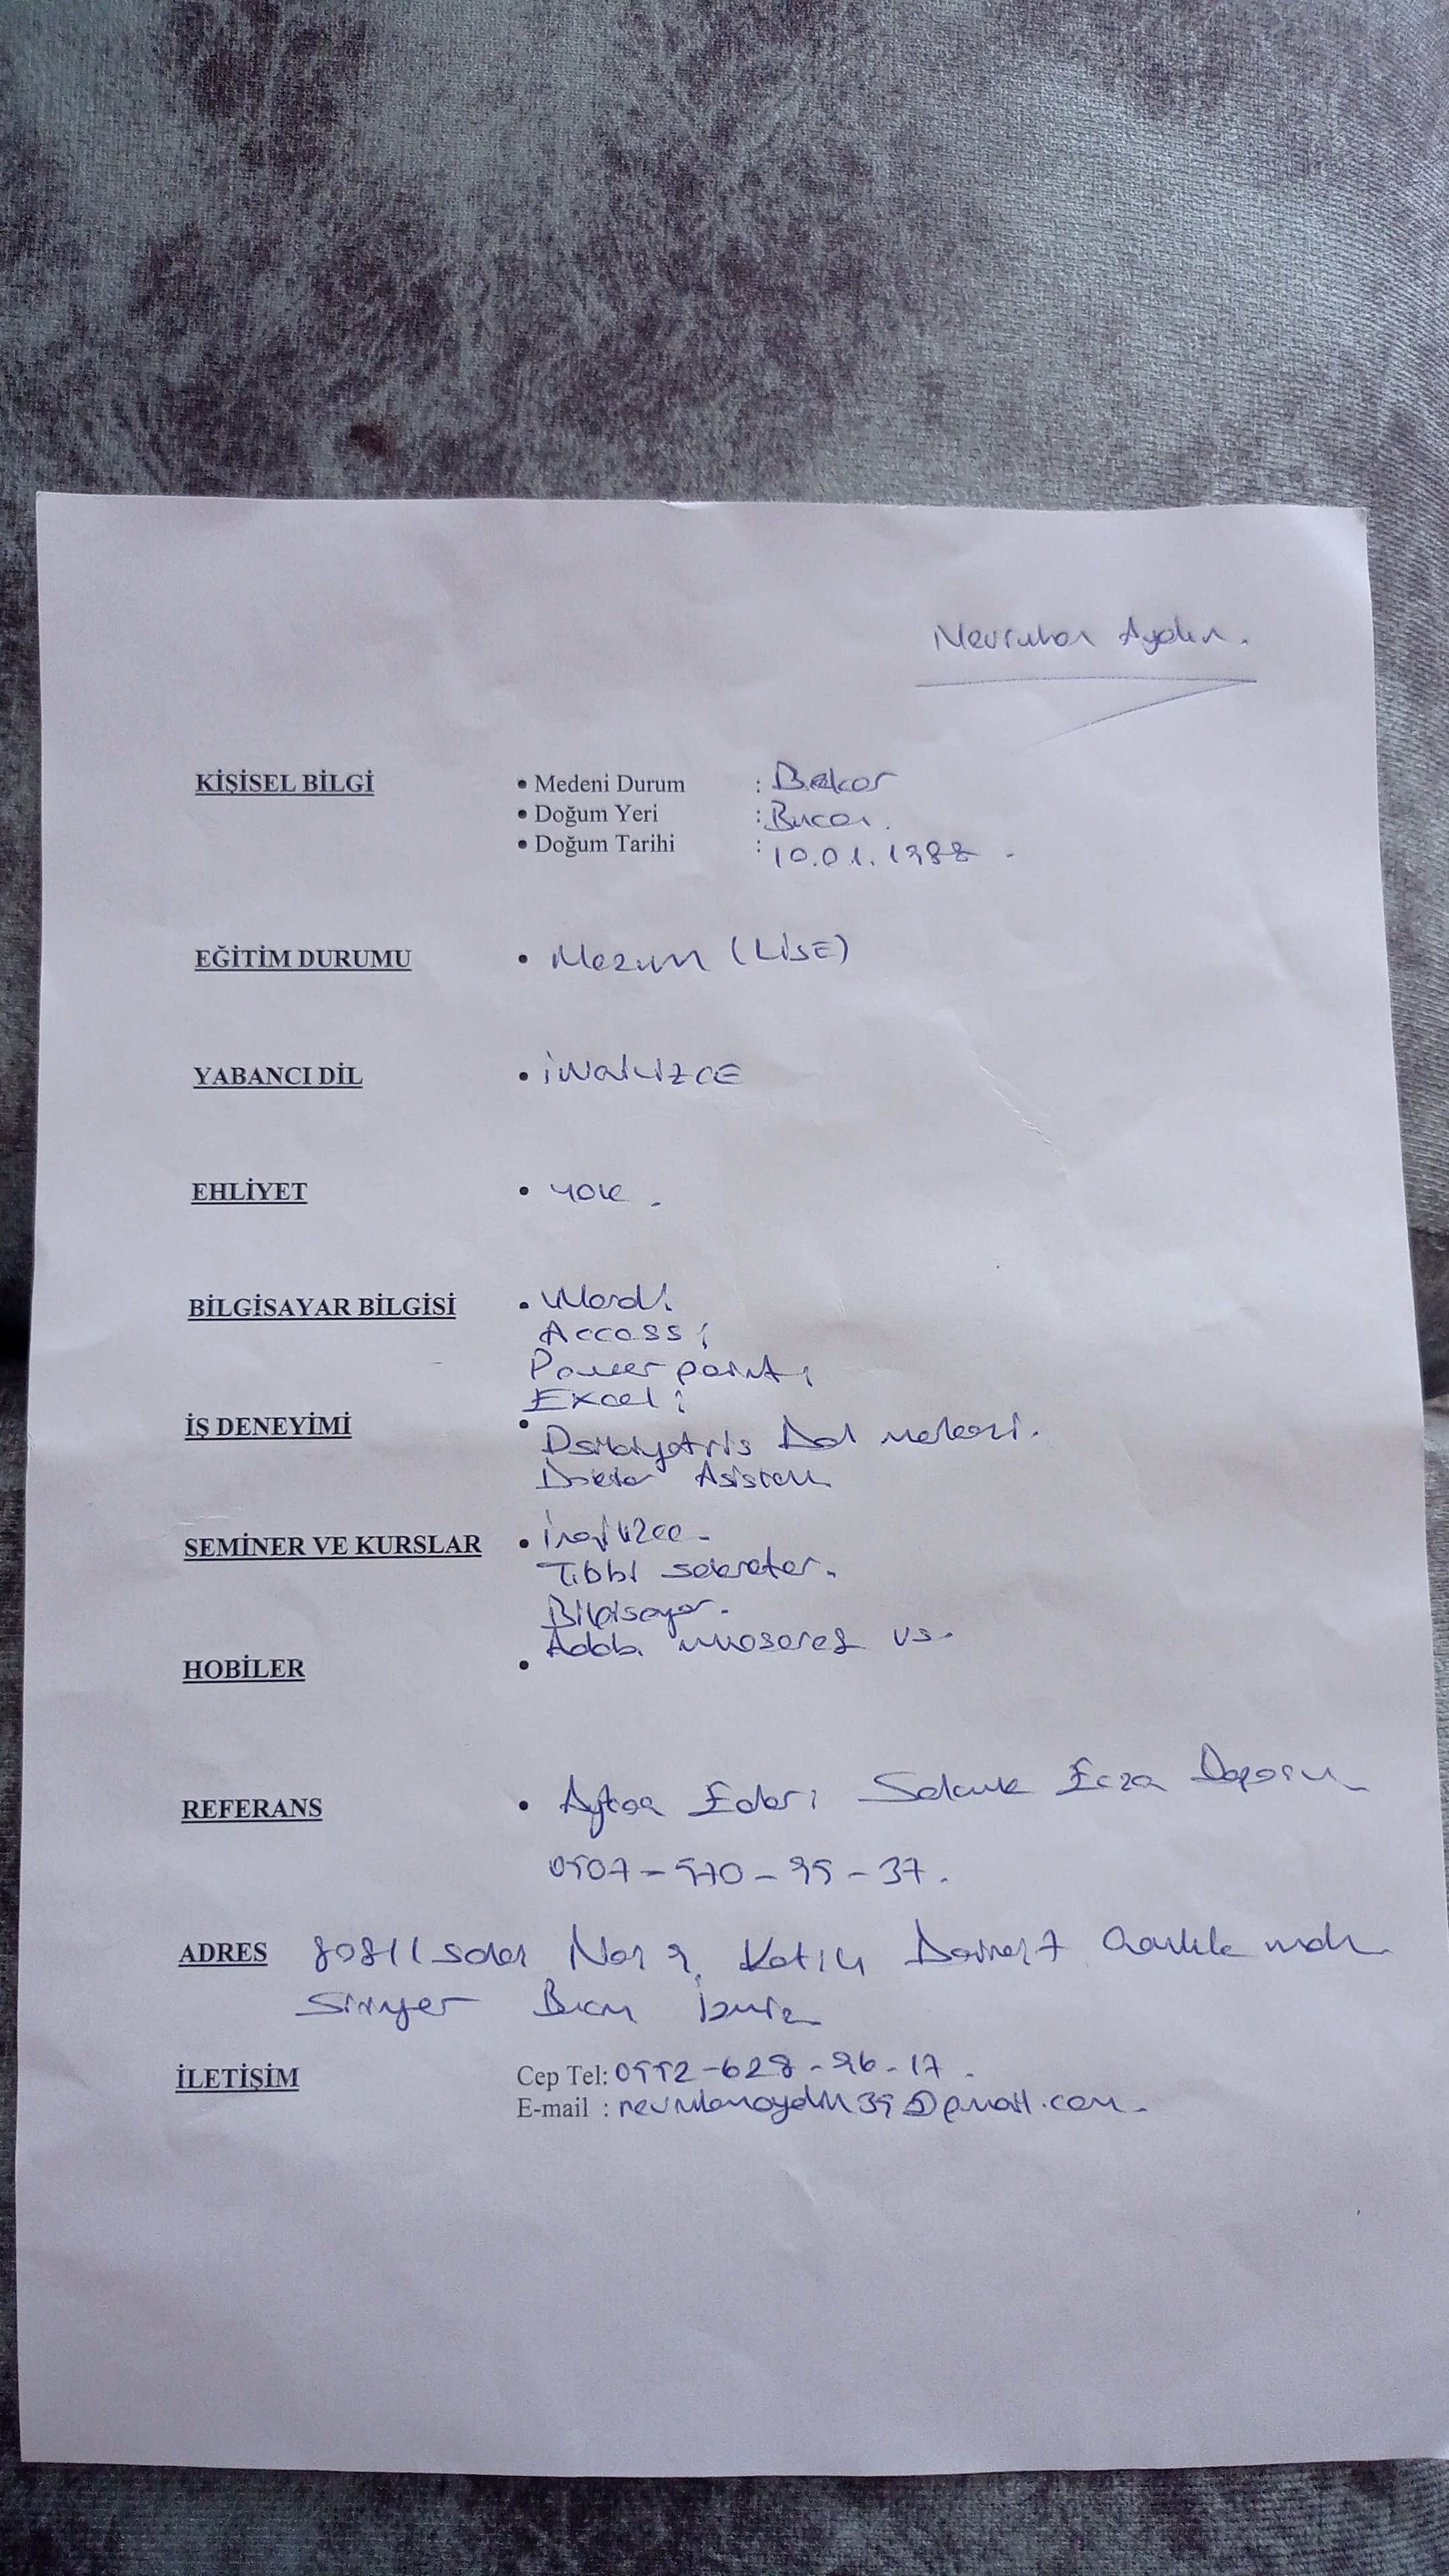 Nevruhan Aydın.
KİŞİSEL BİLGİ
• Medeni Durum : Bekar
• Doğum Yeri : Buca.
• Doğum Tarihi : 10.01.1988.
EĞİTİM DURUMU • Mezun (LİSE)
YABANCI DİL • İNGİLİZCE
EHLİYET • YOK.
BİLGİSAYAR BİLGİSİ • Word;
Access;
Power point;
Excel;
İŞ DENEYİMİ • Psikiyatris Dal merkezi.
Doktor Asistanı
SEMİNER VE KURSLAR • İngilizce.
Tıbbi sekreter.
Bilgisayar.
vs.
HOBİLER •
REFERANS • Selcuk Ecza Deposu
0507-570-95-37.
ADRES sokak No: 9. Kat:4 Daire:7
Sirinyer Buca İzmir
İLETİŞİM
Cep Tel: 0552-628-96-17.
E-mail : nevruhanaydin35@gmail.com.